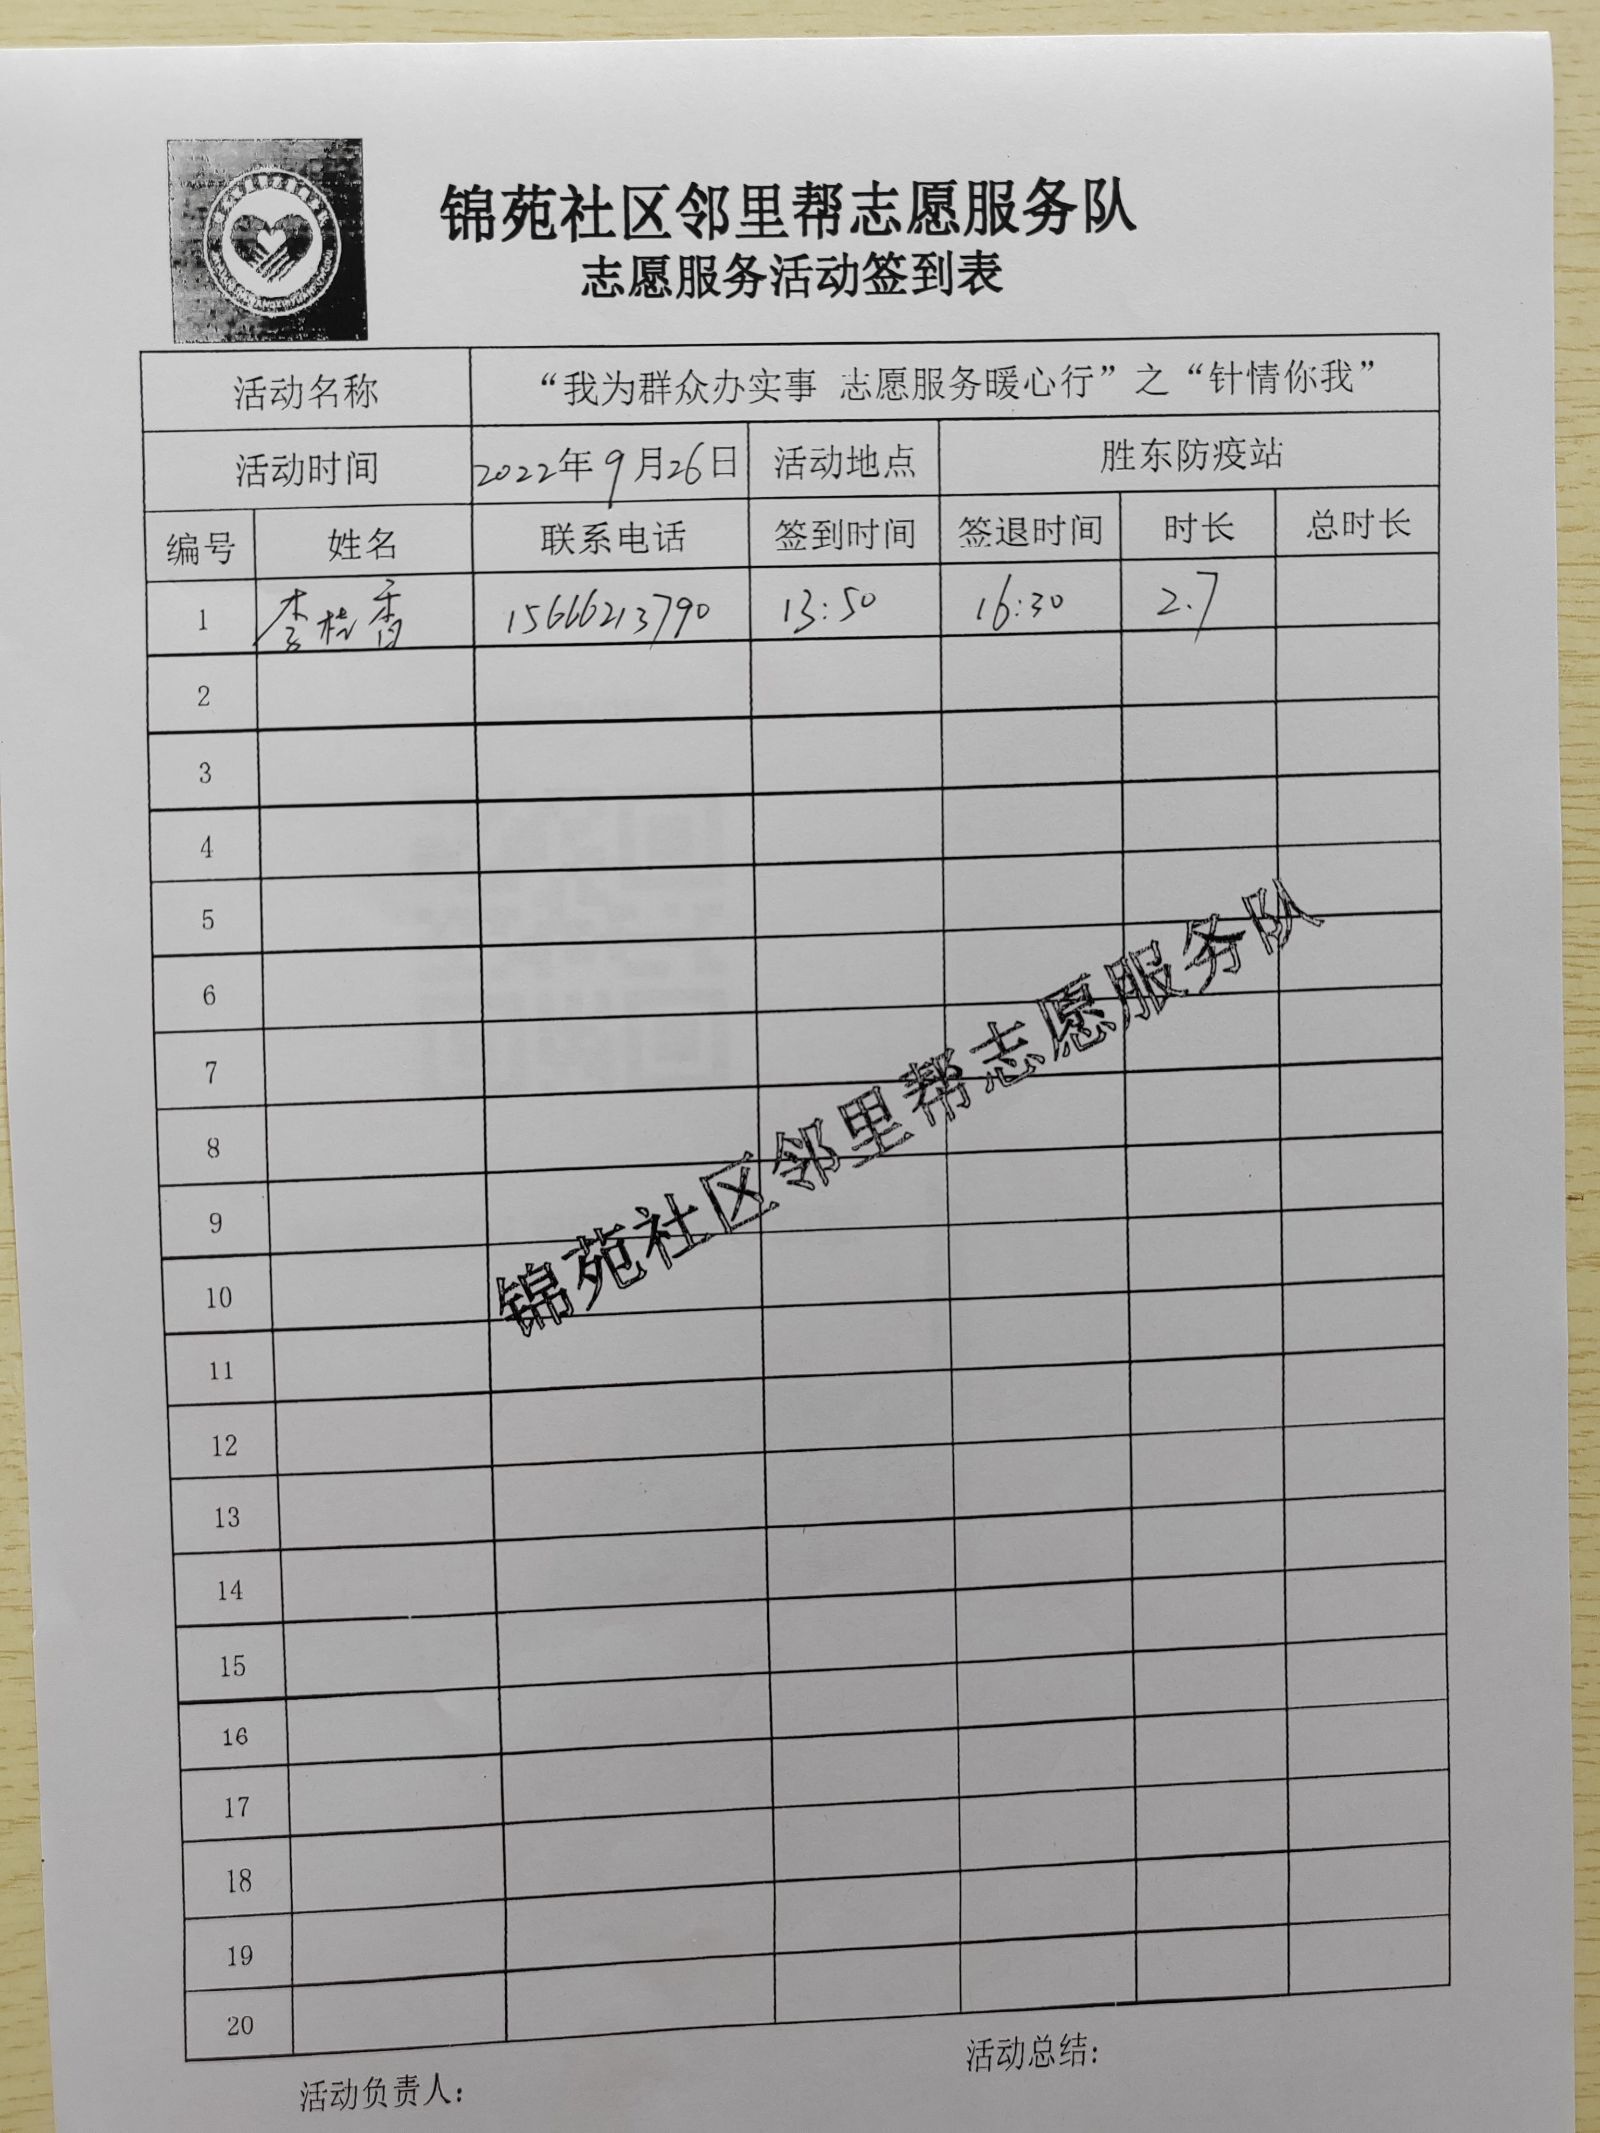 锦苑社区邻里帮志愿服务队
志愿服务活动签到表
活动名称 “我为群众办实事 志愿服务暖心行”之“针情你我”
活动时间 2022年9月26日 活动地点 胜东防疫站
编号 姓名 联系电话 签到时间 签退时间 时长 总时长
1 李桂香 15666213790 13:50 16:30 2.7
2
3
4
5
6
7
8
9
10
11
12
13
14
15
16
17
18
19
20
锦苑社区邻里帮志愿服务队
活动负责人:
活动总结: